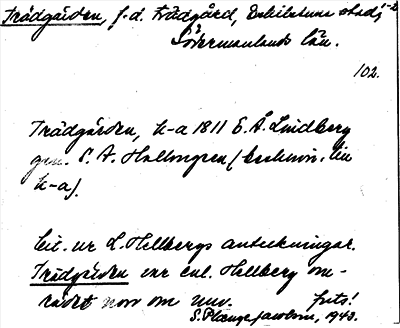 Trädgården, f.d. trädgård, Eskilstuna stad, 1-2
Södermanlands län.
102.
Trädgården, k-a 1811 E. Å. Lindberg
gm. P. A. Hallongren (beskrivn. till
k-a).
Cit. ur L. Hellbergs anteckningar.
Trädgården var enl. Hellberg om-
rådet norr om
forts!
S. Plaenge Jacobson, 1943.